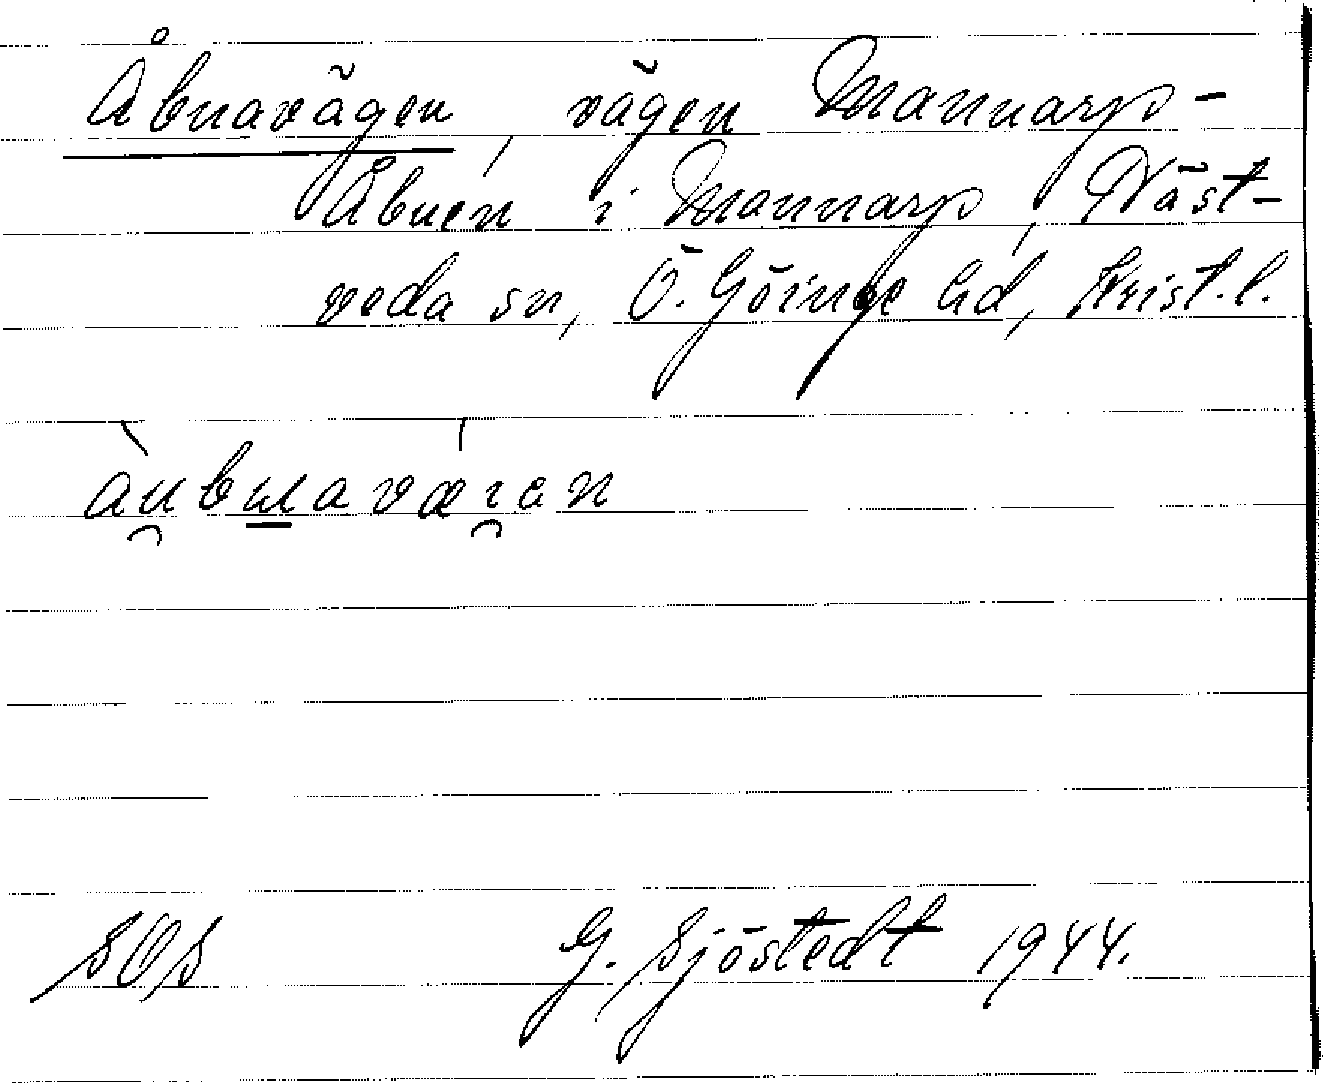 Åbnavägen, vägen Mannarp-
Åbuen i Mannarp, Väst-
veda sn, Ö. Göinge hd, Krist. l.
SOS G. Sjöstedt 1944.